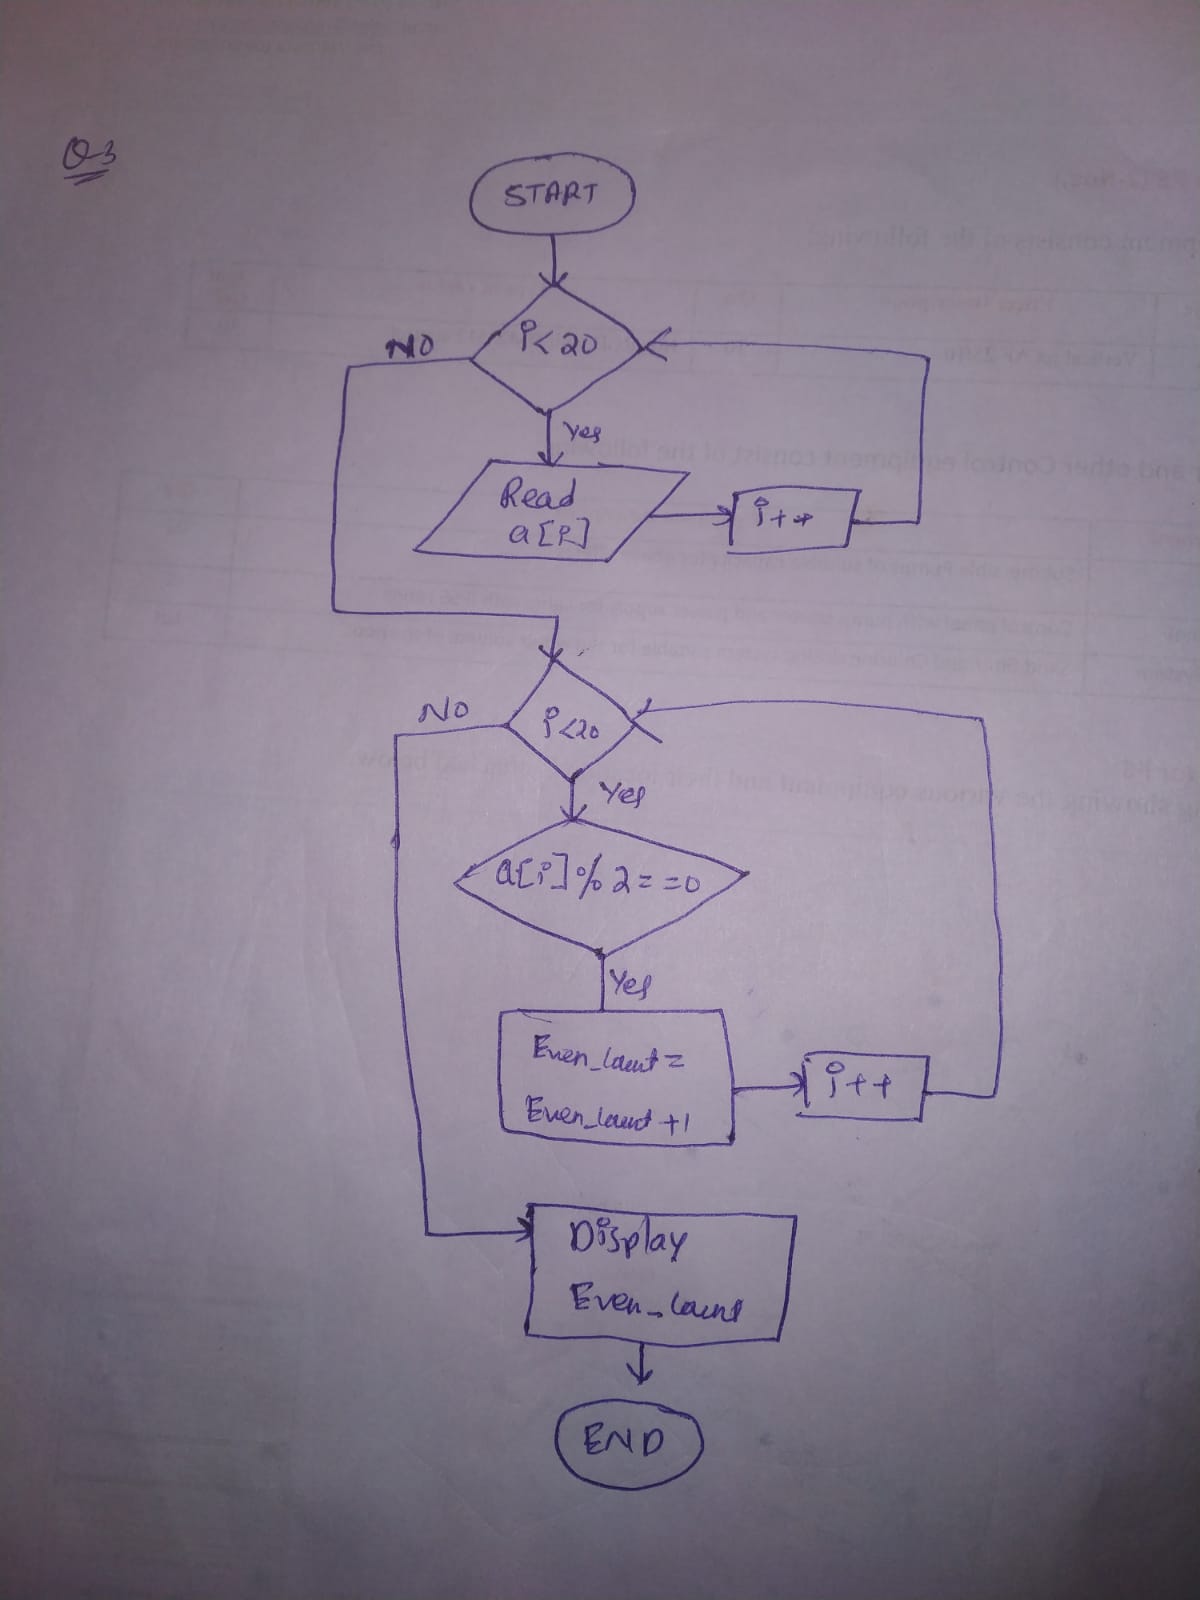 Q-3
START
i<20
NO
Yes
Read
a[i]
i++
i<20
NO
Yes
a[i]%2==0
Yes
Even_Count =
Even_Count +1
i++
Display
Even_Count
END